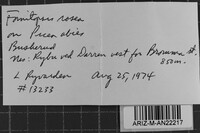 Fomitopsis rosea
on Picea abies
Buskerud
Nes: Rybu ved Derren vest for Bromma st.
850m.
L Ryvarden Aug 25, 1974
# 13233
ARIZ-M-AN22217